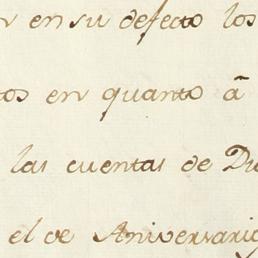 en su defecto los
tos en quanto â
las cuentas de Di
el de Aniversario